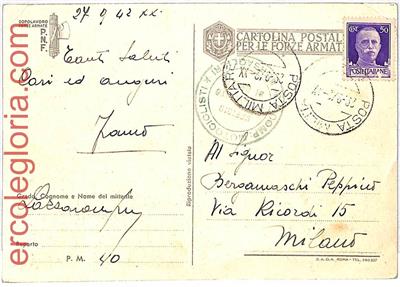 ercolegloria.com
DOPOLAVORO
FORZE ARMATE
P.N.F.
27 9 42 XX
Tanti Saluti
Cari ed auguri
Grado, Cognome e Nome del mittente
Reparto
P. M. 40
Riproduzione vietata
CARTOLINA POSTALE
PER LE FORZE ARMATE
POSTE ITALIANE
50
POSTA MILITARE
POSTA MILITARE
MOTOCICLISTI
Al Signor
Bergamaschi Peppino
Via Ricordi 15
Milano